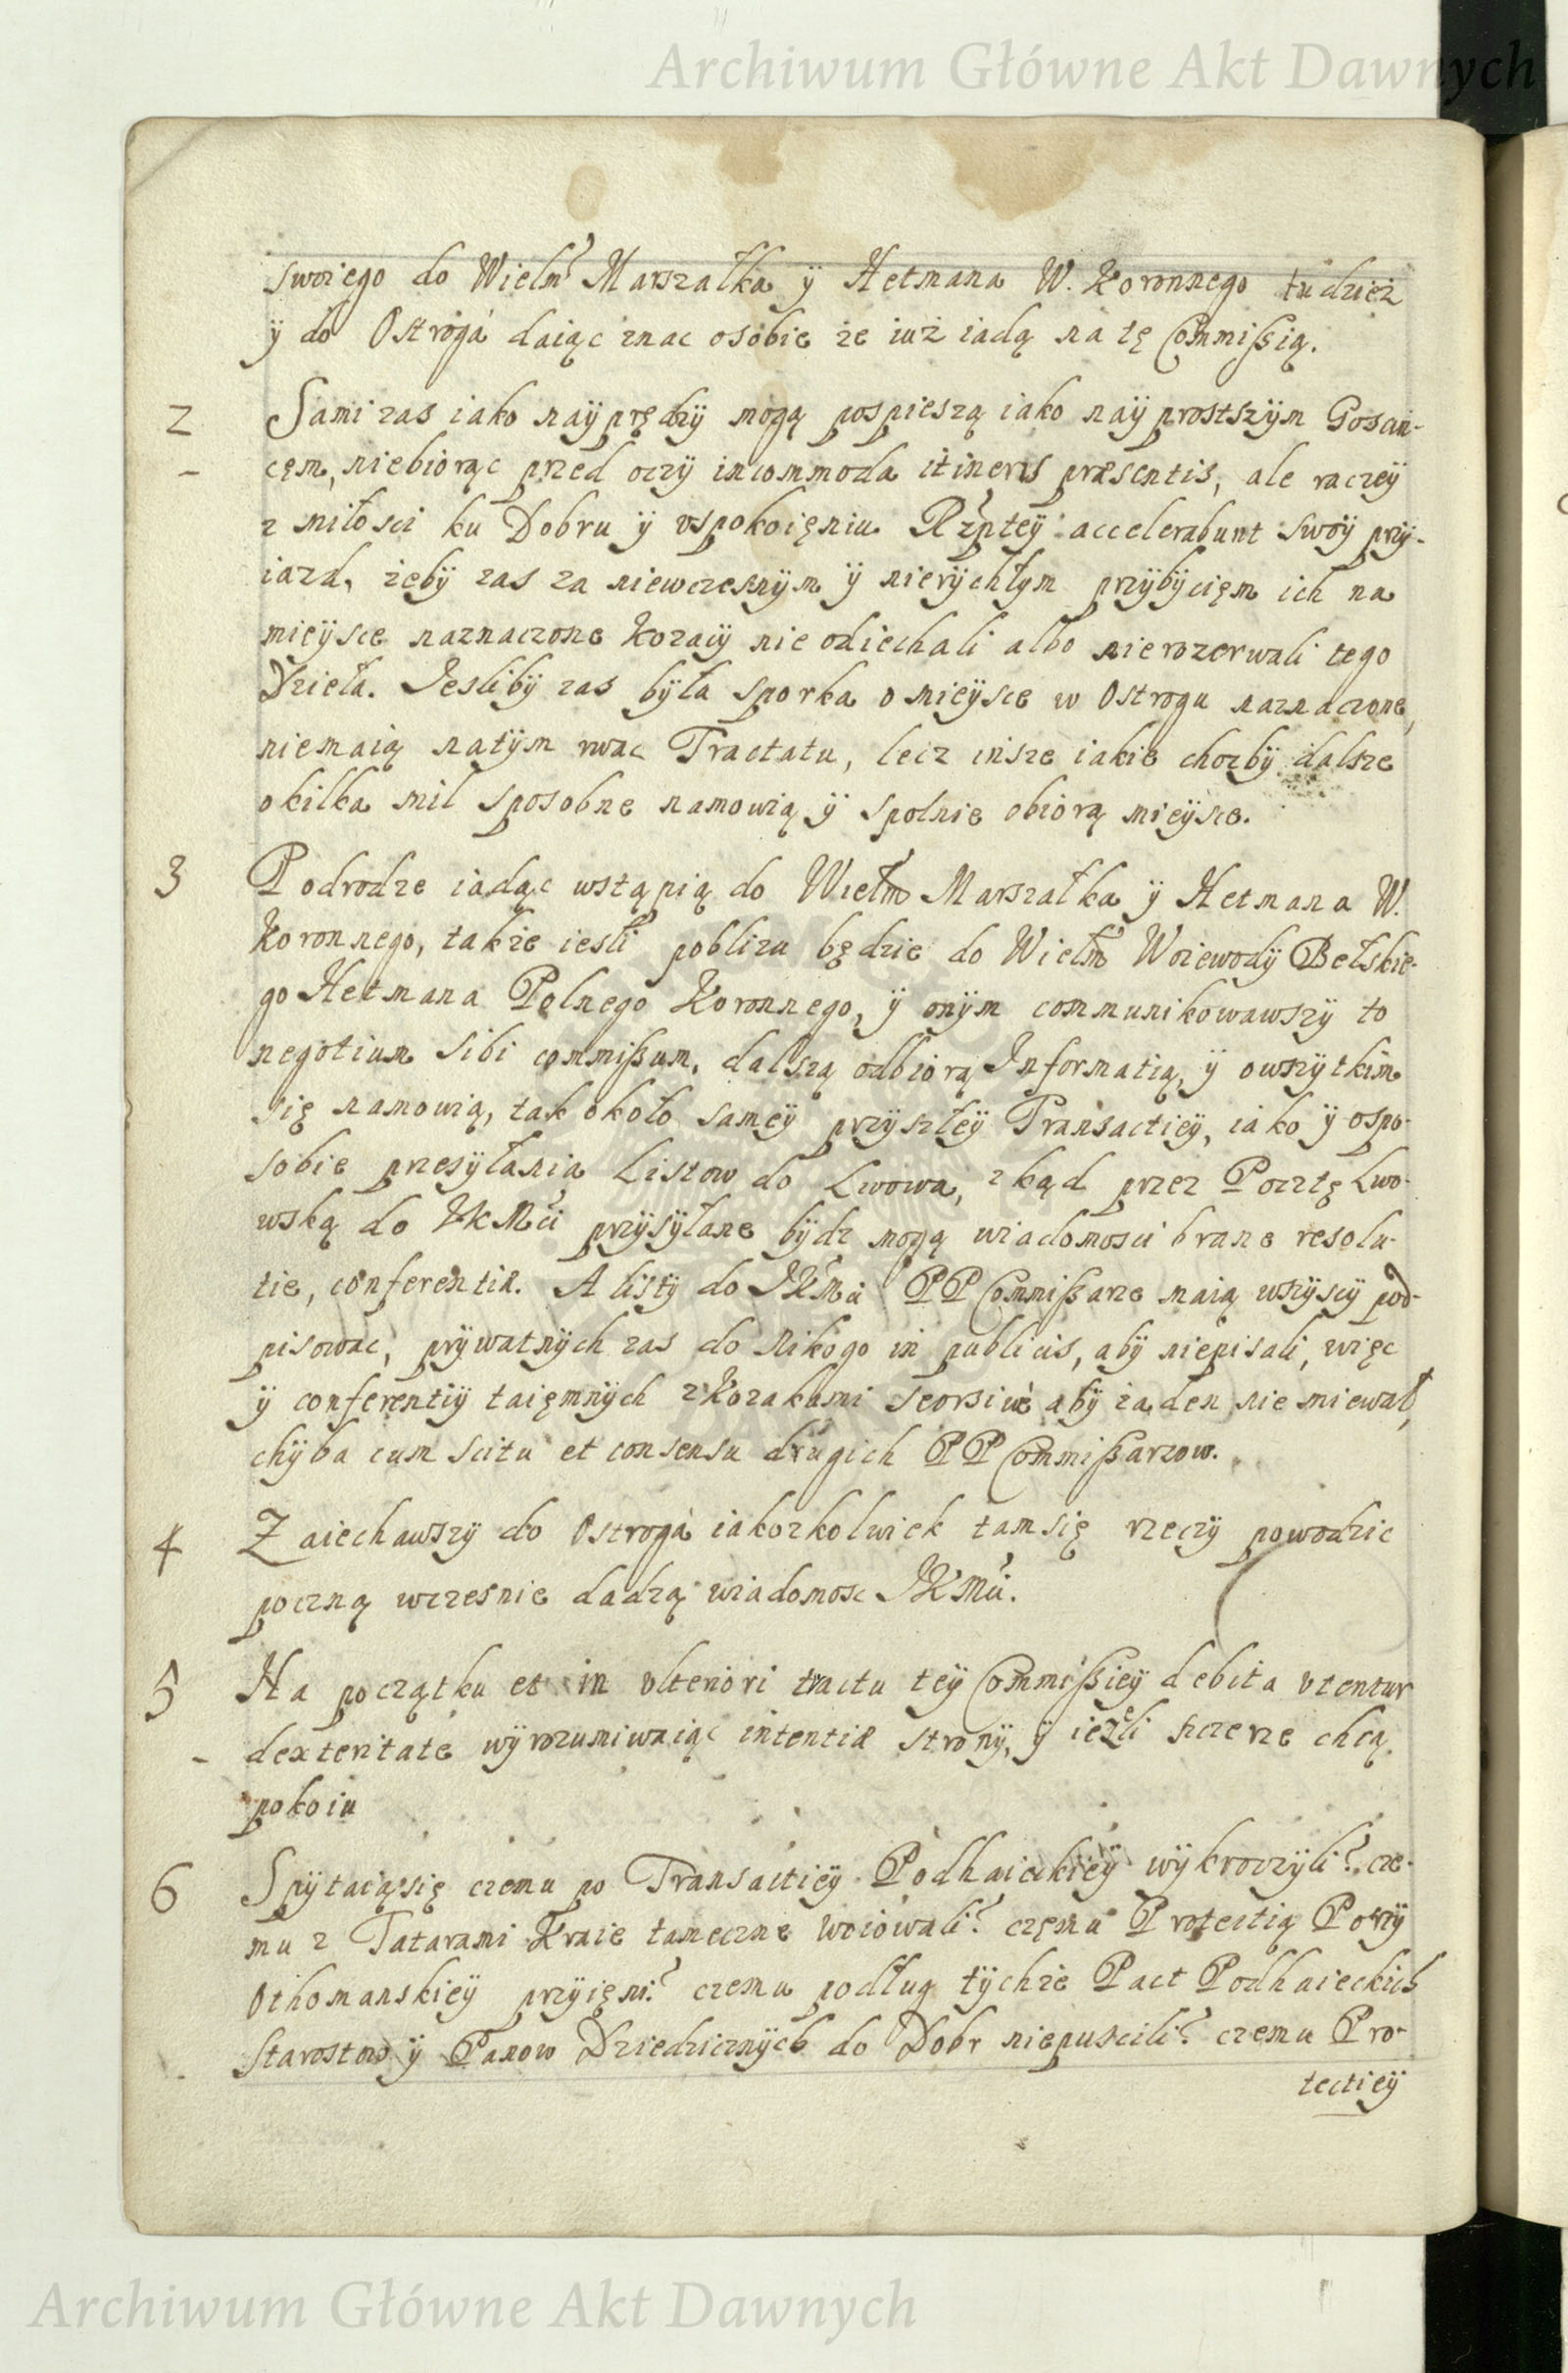 Archiwum Główne Akt Dawnych
swoiego do Wielm? Marszałka ÿ Hetmana W. Koronnego tudziez
ÿ do Ostroga daiąc znac osobie ze iuż iadą na tę Commissią.
2 Sami zas iako naÿprędzÿ mogą pospieszą iako naÿprostszÿm Gosćiń-
cęm, niebiorąc przed oczÿ incommoda itineris præsentis, ale raczeÿ
z miłosci ku Dobru ÿ vspokoięniu Rzpteÿ accelerabunt swoÿ przÿ-
iazd, żebÿ zas za niewczesnÿm ÿ nierÿchłÿm przÿbÿcięm ich na
mieÿsce naznaczone Kozacÿ nie odiechali albo nierozerwali tego
Dzieła. Jeslibÿ zas bÿła sporka o mieÿsce w Ostrogu naznaczone,
niemaią natÿm rwac Tractatu, lecz insze iakie chocbÿ dalsze
okilka mil sposobne namowią ÿ spolnie obiorą mieÿsce.
3 Podrodze iadąc wstąpią do Wielm Marszałka ÿ Hetmana W.
Koronnego, także iesli poblizu będzie do Wielm Woiewodÿ Bełskie-
go Hetmana Polnego Koronnego, ÿ onÿm communikowawszÿ to
negotium sibi commissum, dalszą odbiorą Informatią, ÿ owszÿtkim
się namowią, tak około sameÿ przÿszłeÿ Transactieÿ, iako ÿ ospo-
sobie przesÿłania Listow do Lwowa, zkąd przez Pocztę Lwo-
wską do JKMci przÿsÿłane bÿdz mogą wiadomosci brane resolu-
tie, conferentiæ. A listÿ do JKMci PP Commissarze maią wszÿscÿ pod-
pisowac, prÿwatnÿch zas do nikogo in publicis, abÿ niepisali, więc
ÿ conferentiÿ taięmnÿch z Kozakami seorsivè abÿ żaden nie miewał,
chÿba cum scitu et consensu drugich PP Commissarzow.
4 Zaiechawszÿ do Ostroga iakozkolwiek tamsię rzeczÿ powodzic
poczną wczesnie dadzą wiadomosc JKMci.
5 Na początku et in vlteriori tractu teÿ Commissieÿ debita vtentur
dexteritate wÿrozumiwaiąc intentiæ stronÿ, ÿ ieżeli szczerze chcą
pokoiu
6 Spÿtaiąsię czemu po Transactieÿ Podhaieckieÿ wÿkroczÿli? cze-
mu z Tatarami Kraie tameczne woiowali? częmu Protectią Portÿ
Othomanskieÿ przÿięni? czemu podług tÿchże Pact Podhaieckich
Starostow ÿ Panow Dziedzicznÿch do Dobr niepuscili? czemu Pro-
tectieÿ
Archiwum Główne Akt Dawnych